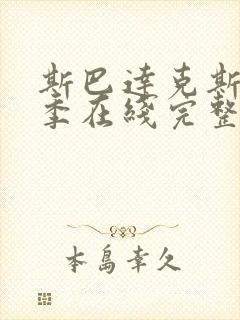 斯巴達克斯
季在綫完整
本島幸久